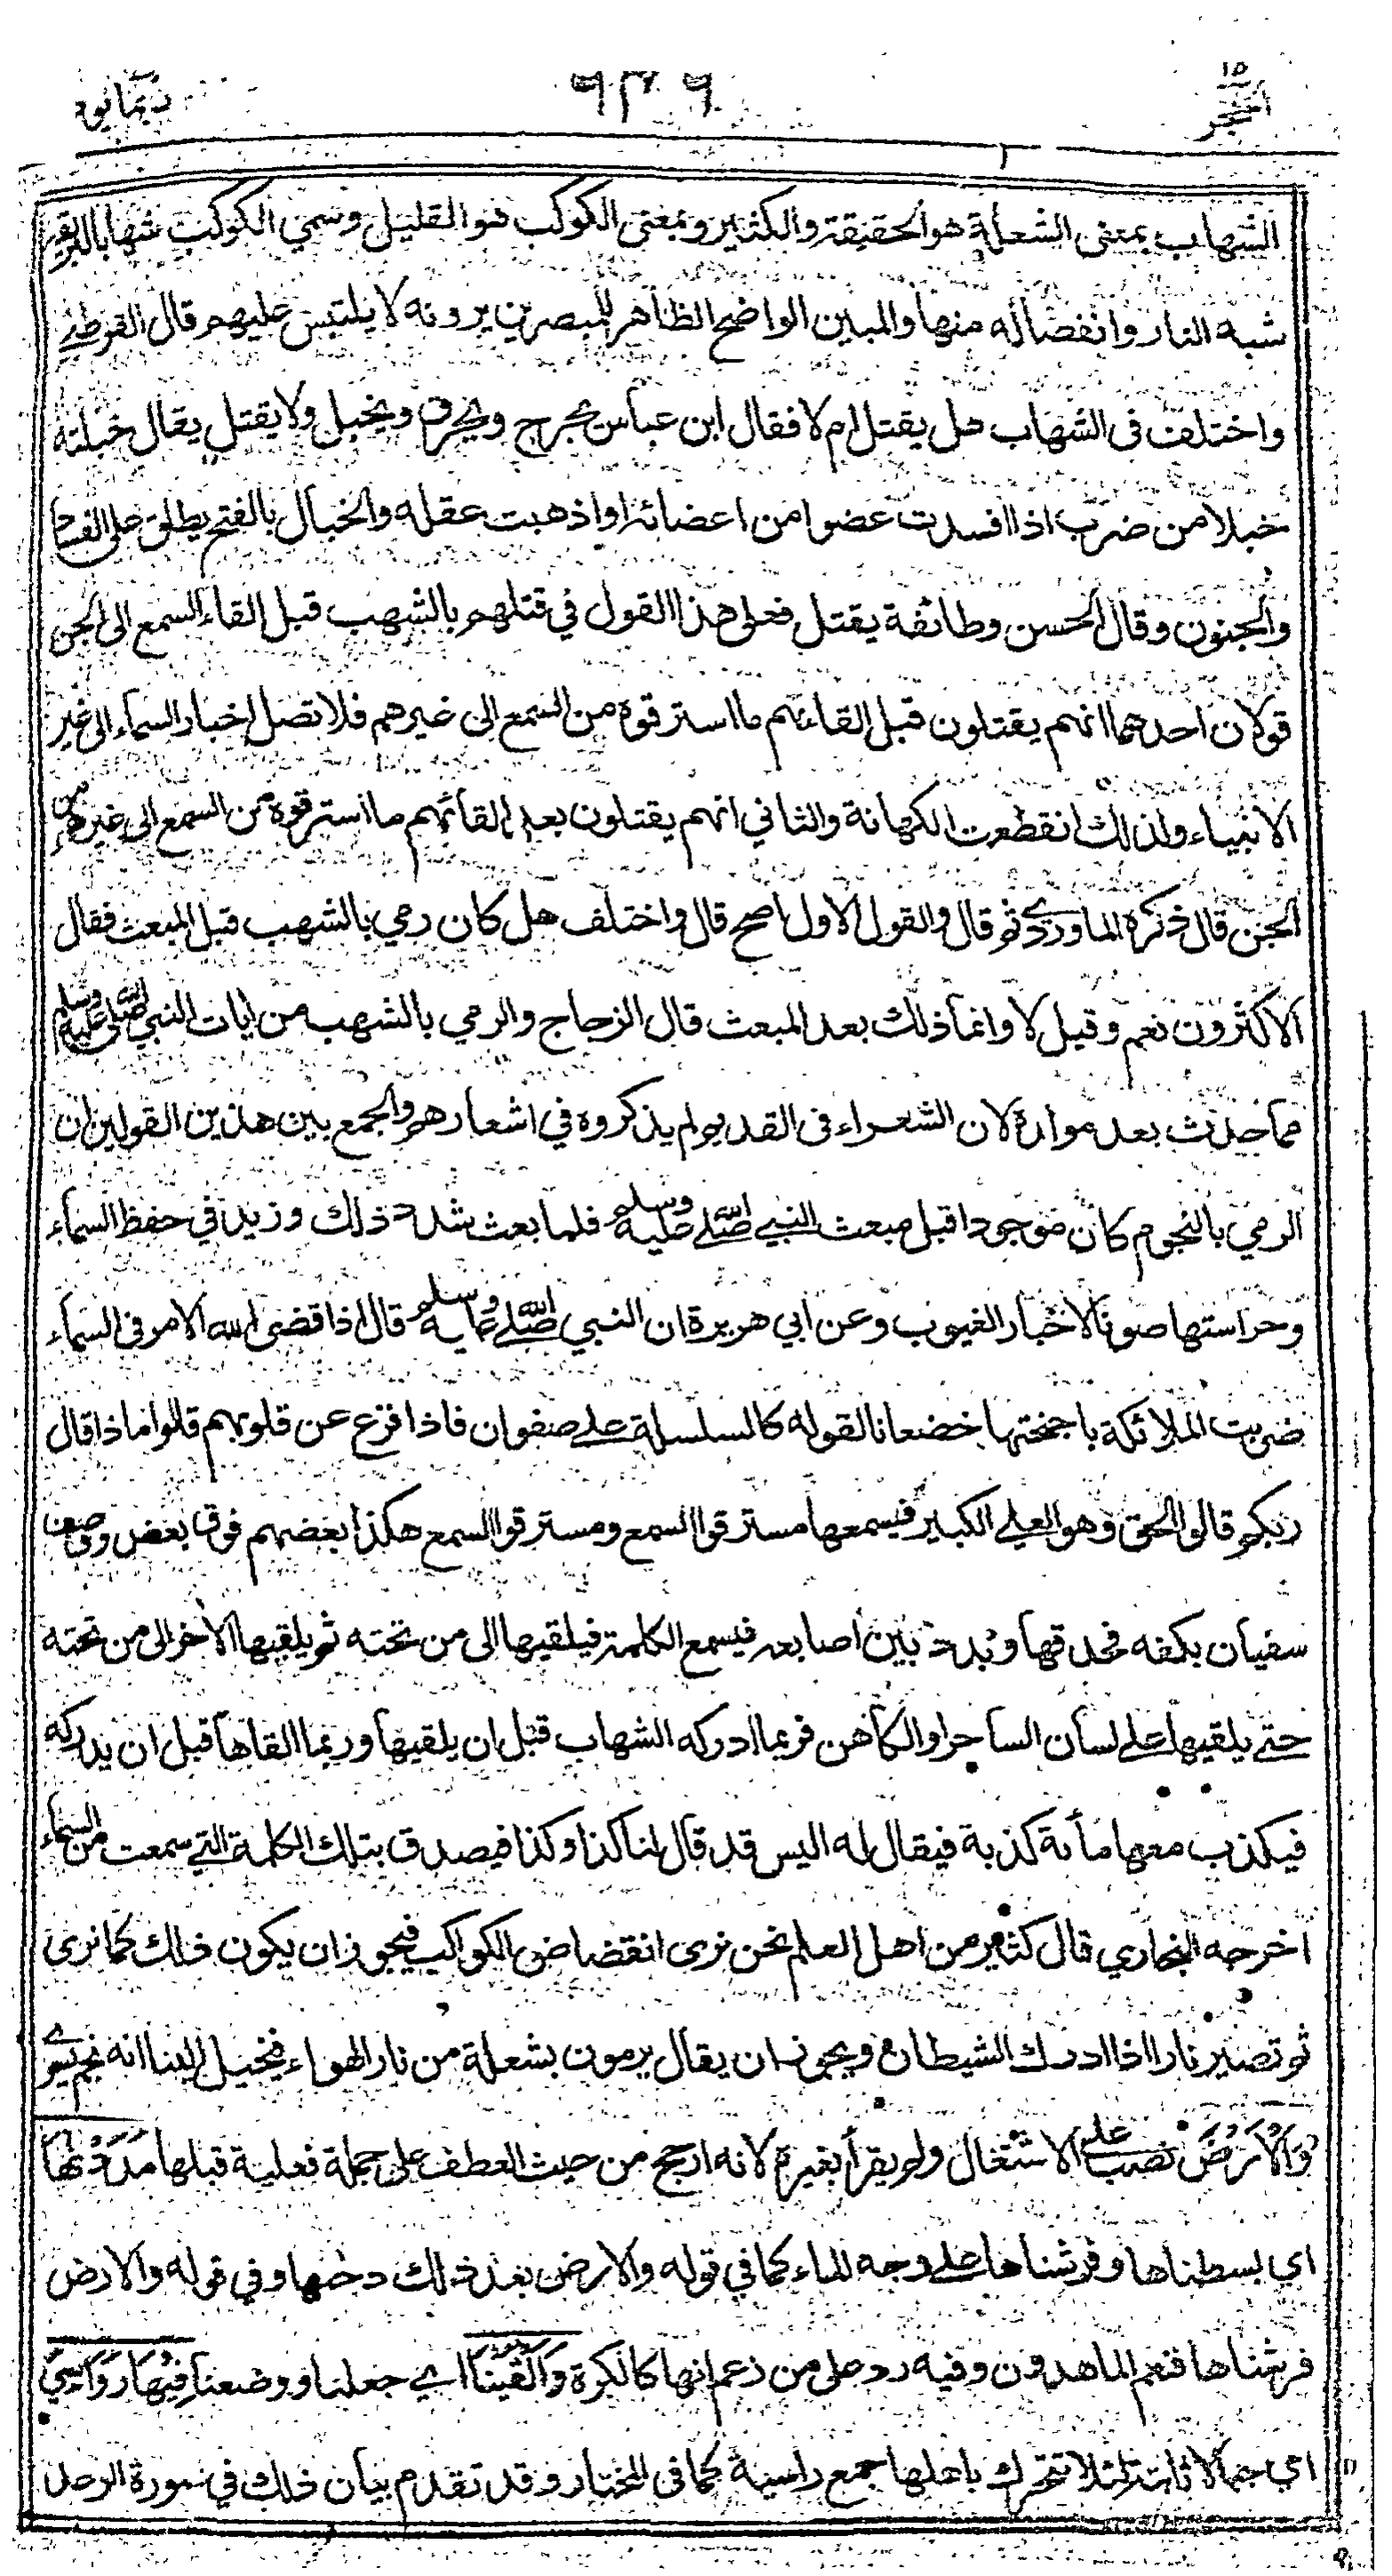 ١٥
الحجر
٩٣٩
الشهاب بمعنى الشعلة هو الحقيقة والكثير وبمعنى الكوكب هو القليل وسمي الكوكب شهابا
شبه النار وانفصاله منها والمبين الواضح الظاهر للمبصرين يرونه لا يلتبس عليهم قال القرطبي
واختلف فى الشهاب هل يقتل ام لا فقال ابن عباس يجرح ويحرق ويخبل ولا يقتل يقال خبلته
خبلا من ضرب اذا افسدت عضوا من اعضائه او اذهبت عقله والخبال بالفتح يطلق على الفساد
والجنون وقال الحسن وطائفة يقتل فعلى هذا القول في قتلهم بالشهب قبل القاء السمع الى الجن
قولان احدهما انهم يقتلون قبل القائهم ما استرقوه من السمع الى غيرهم فلا تصل اخبار السماء الى غير
الانبياء ولذلك انقطعت الكهانة والثاني انهم يقتلون بعد القائهم ما استرقوه من السمع الى غيرهم من
الجن قال ذكره الماوردي ثم قال والقول الاول اصح قال واختلف هل كان رمي بالشهب قبل المبعث فقال
الاكثرون نعم وقيل لا وانما ذلك بعد المبعث قال الزجاج والرمي بالشهب من ايات النبي صلى الله عليه وسلم
مما حدث بعد مولده لان الشعراء فى القديم لم يذكروه في اشعارهم والجمع بين هذين القولين ان
الرمي بالنجوم كان موجودا قبل مبعث النبي صلى الله عليه وسلم فلما بعث شدد ذلك وزيد في حفظ السماء
وحراستها صونا لاخبار الغيوب وعن ابي هريرة ان النبي صلى الله عليه وسلم قال اذا قضى الله الامر فى السماء
ضربت الملائكة باجنحتها خضعانا لقوله كالسلسلة على صفوان فاذا فزع عن قلوبهم قالوا ماذا قال
ربكم قالوا الحق وهو العلي الكبير فيسمعها مسترقوا السمع ومسترقوا السمع هكذا بعضهم فوق بعض ووصف
سفيان بكفه فحدقها وبدد بين اصابعه فيسمع الكلمة فيلقيها الى من تحته ثم يلقيها الاخر الى من تحته
حتى يلقيها على لسان الساحر او الكاهن فربما ادركه الشهاب قبل ان يلقيها وربما القاها قبل ان يدركه
فيكذب معها مأئة كذبة فيقال له اليس قد قال لنا كذا وكذا فيصدق بتلك الكلمة التي سمعت من السماء
اخرجه البخاري قال كثير من اهل العلم نحن نرى انقضاض الكواكب فيجوز ان يكون ذلك كما نرى
ثم تصير نارا اذا ادرك الشيطان ويجوز ان يقال يرمون بشعلة من نار الهواء فيخيل الينا انه نجم يسري
وَالْاَرْضَ نصب على الاشتغال ولم يقرأ بغيره لانه ارجح من حيث العطف على جملة فعلية قبلها مَدَدْنٰهَا
اي بسطناها وفرشناها على وجه الماء كما في قوله والارض بعد ذلك دحٰها وفي قوله والارض
فرشناها فنعم الماهدون وفيه رد على من زعم انها كالكرة وَاَلْقَيْنَا اي جعلنا ووضعنا فِيْهَا رَوَاسِيَ
اي جبالا ثابتة لئلا تتحرك باهلها جمع راسية كما فى المختار وقد تقدم بيان ذلك في سورة الرعد